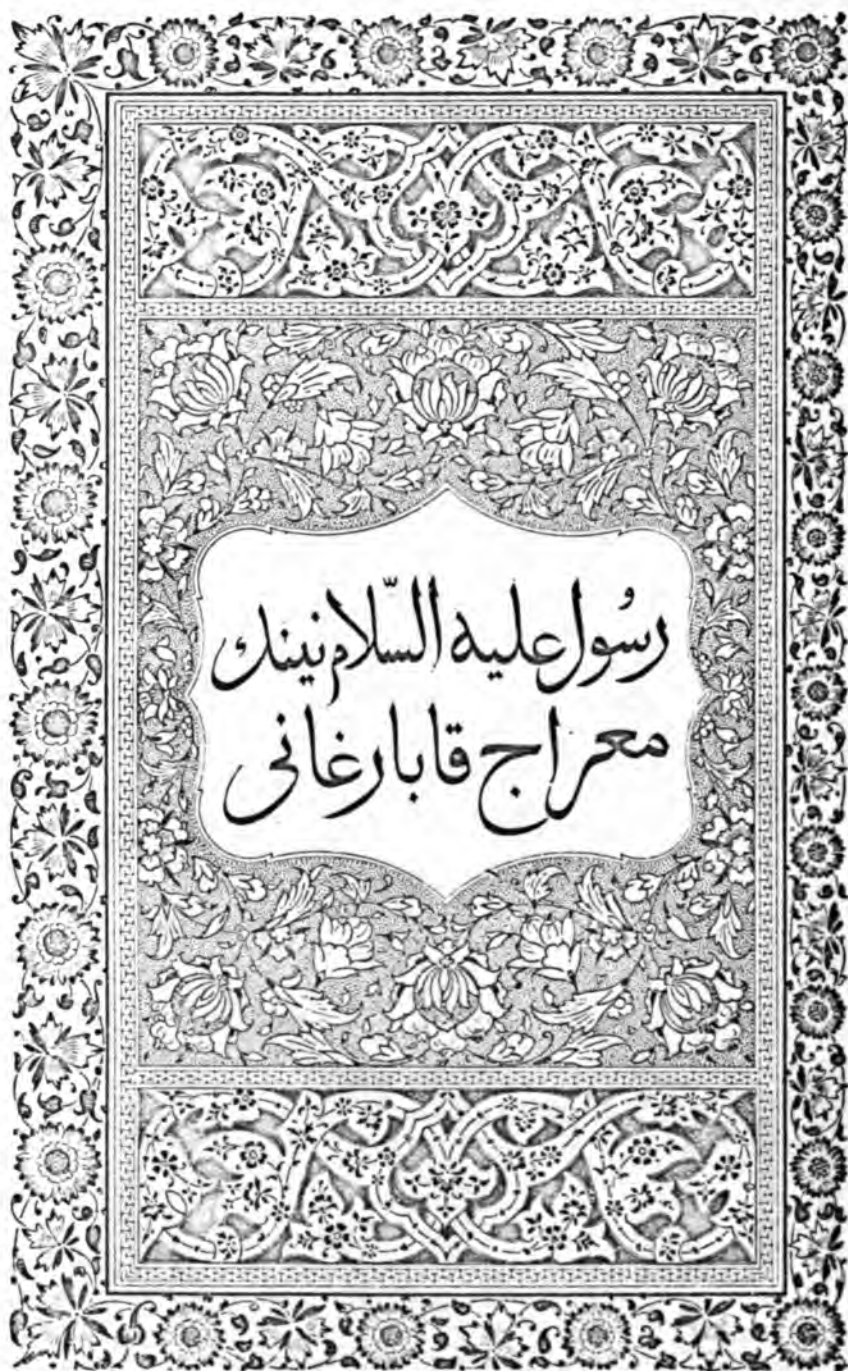 رسُول عليه السّلام نينك
معراج قابارغانى